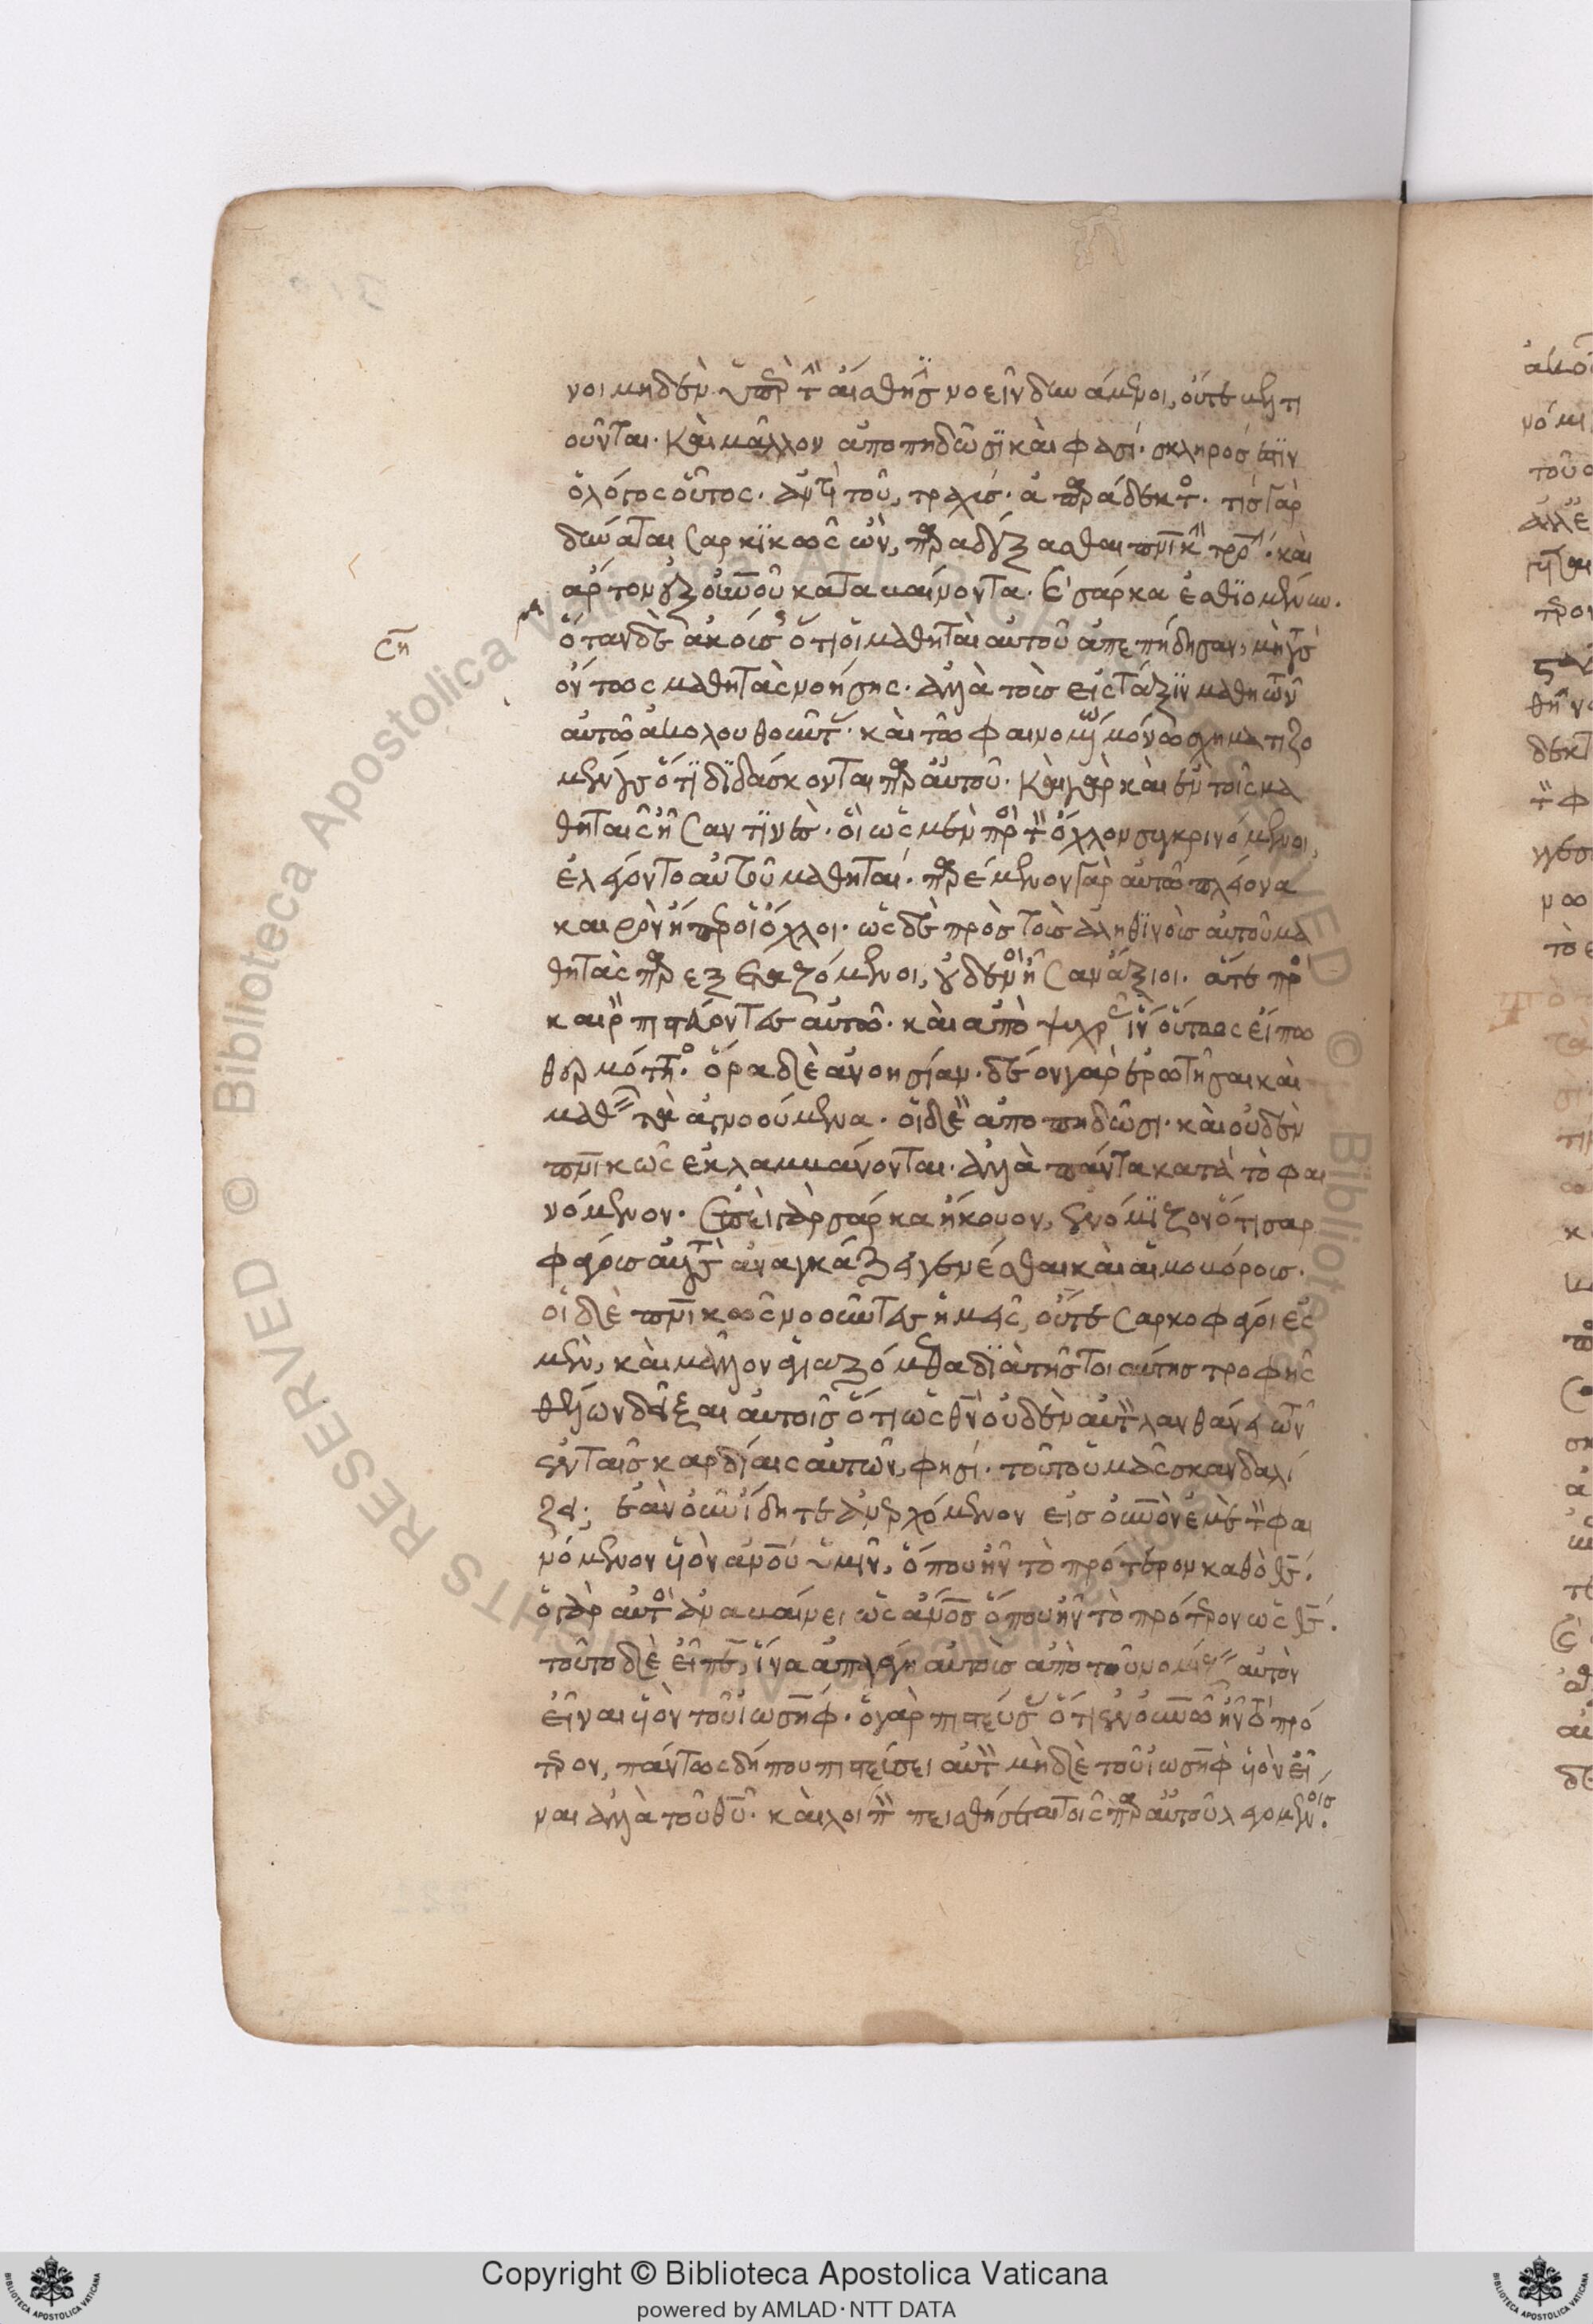 νοι μηδὲν ὑπὲρ τὴν αἴσθησιν νοεῖν δυνάμενοι, οὔτε μετι
οῦνται. καὶ μᾶλλον ἀποπηδῶσι καὶ φασί. σκληρός ἐστιν
ὁ λόγος οὗτος. ἀντὶ τοῦ, τραχύς. ἀπαράδεκτος. τίς γὰρ
δύναται σαρκικὸς ὢν, παραδέξασθαι πνικὴν τροφήν. καὶ
ἄρτον ἐξ οὐνοῦ καταβαίνοντα. καὶ σάρκα ἐσθιομένην.
ὅταν δὲ ἀκούσῃς ὅτι οἱ μαθηταὶ αὐτοῦ ἀπεπήδησαν, μὴ τοὺς
ὄντως μαθητὰς νοήσῃς. ἀλλὰ τοὺς εἰς τάξιν μαθητῶν
αὐτῶ ἀκολουθοῦντας. καὶ τῶ φαινομένω μόνω σχηματιζο
μένους ὅτι διδάσκονται παρ αὐτοῦ. καὶ γὰρ καὶ ἐν τοῖς μα
θηταῖς ἦσαν τινὲς. οἳ ὡς μὲν πρὸς τὸν ὄχλον συγκρινόμενοι,
ἐλέγοντο αὐτοῦ μαθηταί. παρέμενον γὰρ αὐτῶ πλείονα
καιρὸν ἤπερ οἱ ὄχλοι. ὡς δὲ πρὸς τοὺς ἀληθινοὺς αὐτοῦ μα
θητὰς παρεξεταζόμενοι, οὐδενὸς ἦσαν ἄξιοι. ἅτε πρὸς
καιρὸν πιστεύοντες αὐτῶ. καὶ ἀπὸ ψυχρᾶς ἵν οὕτως εἴπω
θερμότητος. ὅρα δὲ ἀνοησίαν. δέον γὰρ ἐρωτῆσαι καὶ
μαθεῖν τὰ ἀγνοούμενα. οἱ δὲ ἀποπηδῶσι. καὶ οὐδὲν
πνικῶς ἐκλαμβάνονται. ἀλλὰ πάντα κατὰ τὸ φαι
νόμενον. ἐπεὶ γὰρ σάρκα ἤκουον, ἐνόμιζον ὅτι σαρ
φάγους αὐτοὺς ἀναγκάζει γενέσθαι καὶ αἱμοβόρους.
οἱ δὲ πνικῶς νοοῦντες ἡμεῖς, οὔτε σαρκοφάγοι ἐσ
μὲν, καὶ μᾶλλον ἁγιαζόμεθα διὰ τῆς τοιαύτης τροφῆς
θέλων δεῖξαι αὐτοῖς ὅτι ὡς θν̄ οὐδὲν αὐτὸν λανθάνει τῶν
ἐν ταῖς καρδίαις αὐτῶν, φησί. τοῦτο ὑμᾶς σκανδαλί
ζει; ἐὰν οὖν ἴδητε ἀνερχόμενον εἰς οὐνὸν ἐμὲ τὸν φαι
νόμενον υἱὸν ἀνοῦ ὑμῖν, ὅπου ἦν τὸ πρότερον καθὸ θς.
ὁ γὰρ αὐτὸς ἀναβαίνει ὡς ἀνος ὅπου ἦν τὸ πρότερον ὡς θς.
τοῦτο δὲ εἶπεν, ἵνα ἀπαγάγη αὐτοὺς ἀπὸ τοῦ νομίζειν αὐτὸν
εἶναι υἱὸν τοῦ ἰωσήφ. ὁ γὰρ πιστεύσας ὅτι ἐν οὐνῶ ἦν τὸ πρό
τερον, πάντως δήπου πιστεύσει αὐτὸν μηδὲ τοῦ ἰωσὴφ υἱὸν εἶ
ναι ἀλλὰ τοῦ θυ. καὶ λοιπὸν πεισθήσεται τοῖς παρ αὐτοῦ λεγομένοις.